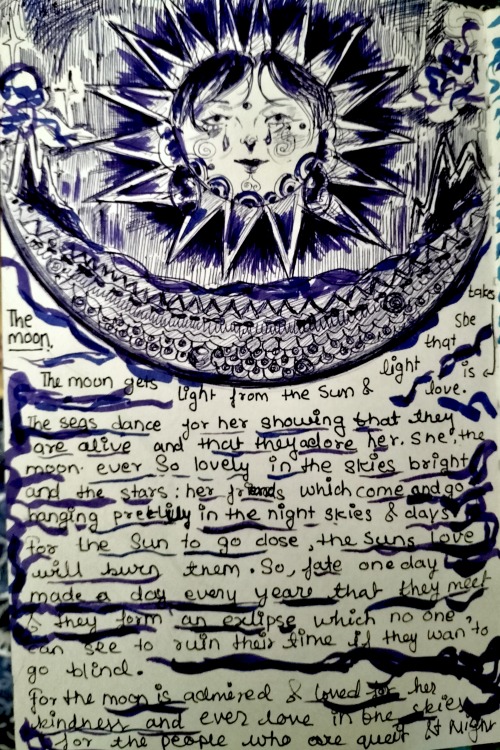 The
moon.
The moon gets light from the Sun &
light is
that
She
takes
love.
The seas dance for her showing that they
are alive and that they adore her. She, the
moon. ever so lovely in the skies bright
and the stars: her friends which come and go
hanging prettily in the night skies & days
For the Sun to go close, the Suns love
will burn them. So, fate one day
made a day every year that they meet
& they form an exlipse which no one
can see to ruin their time if they wan'to
go blind.
For the moon is admired & loved for her
kindness and ever love in the skies
for the people who are quiet At Night